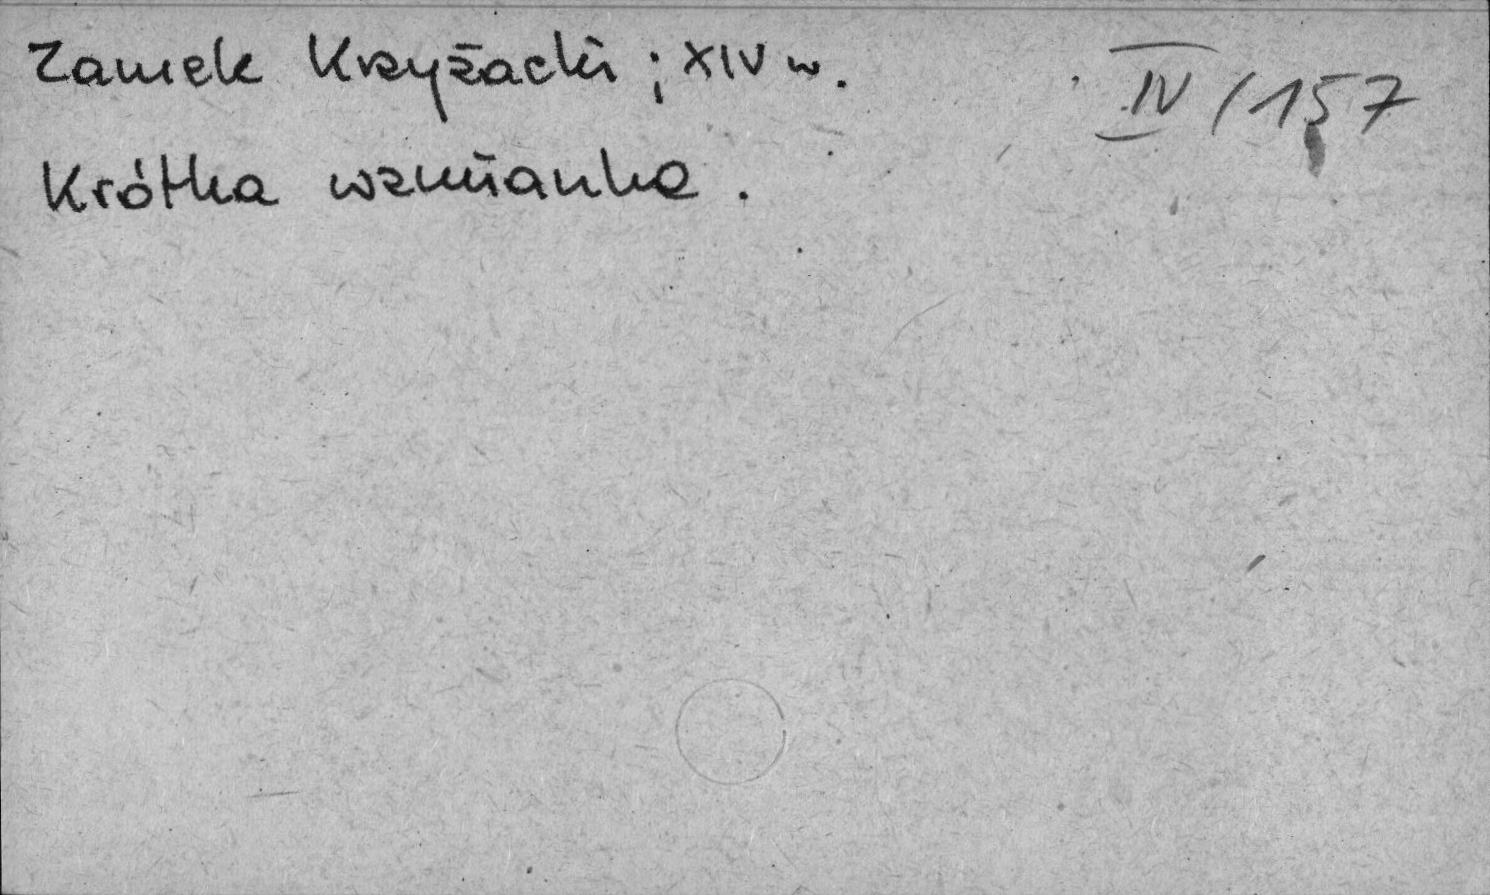 Zamek Krzyżacki ; XIV w.
IV / 157
Krótka wzmianka .